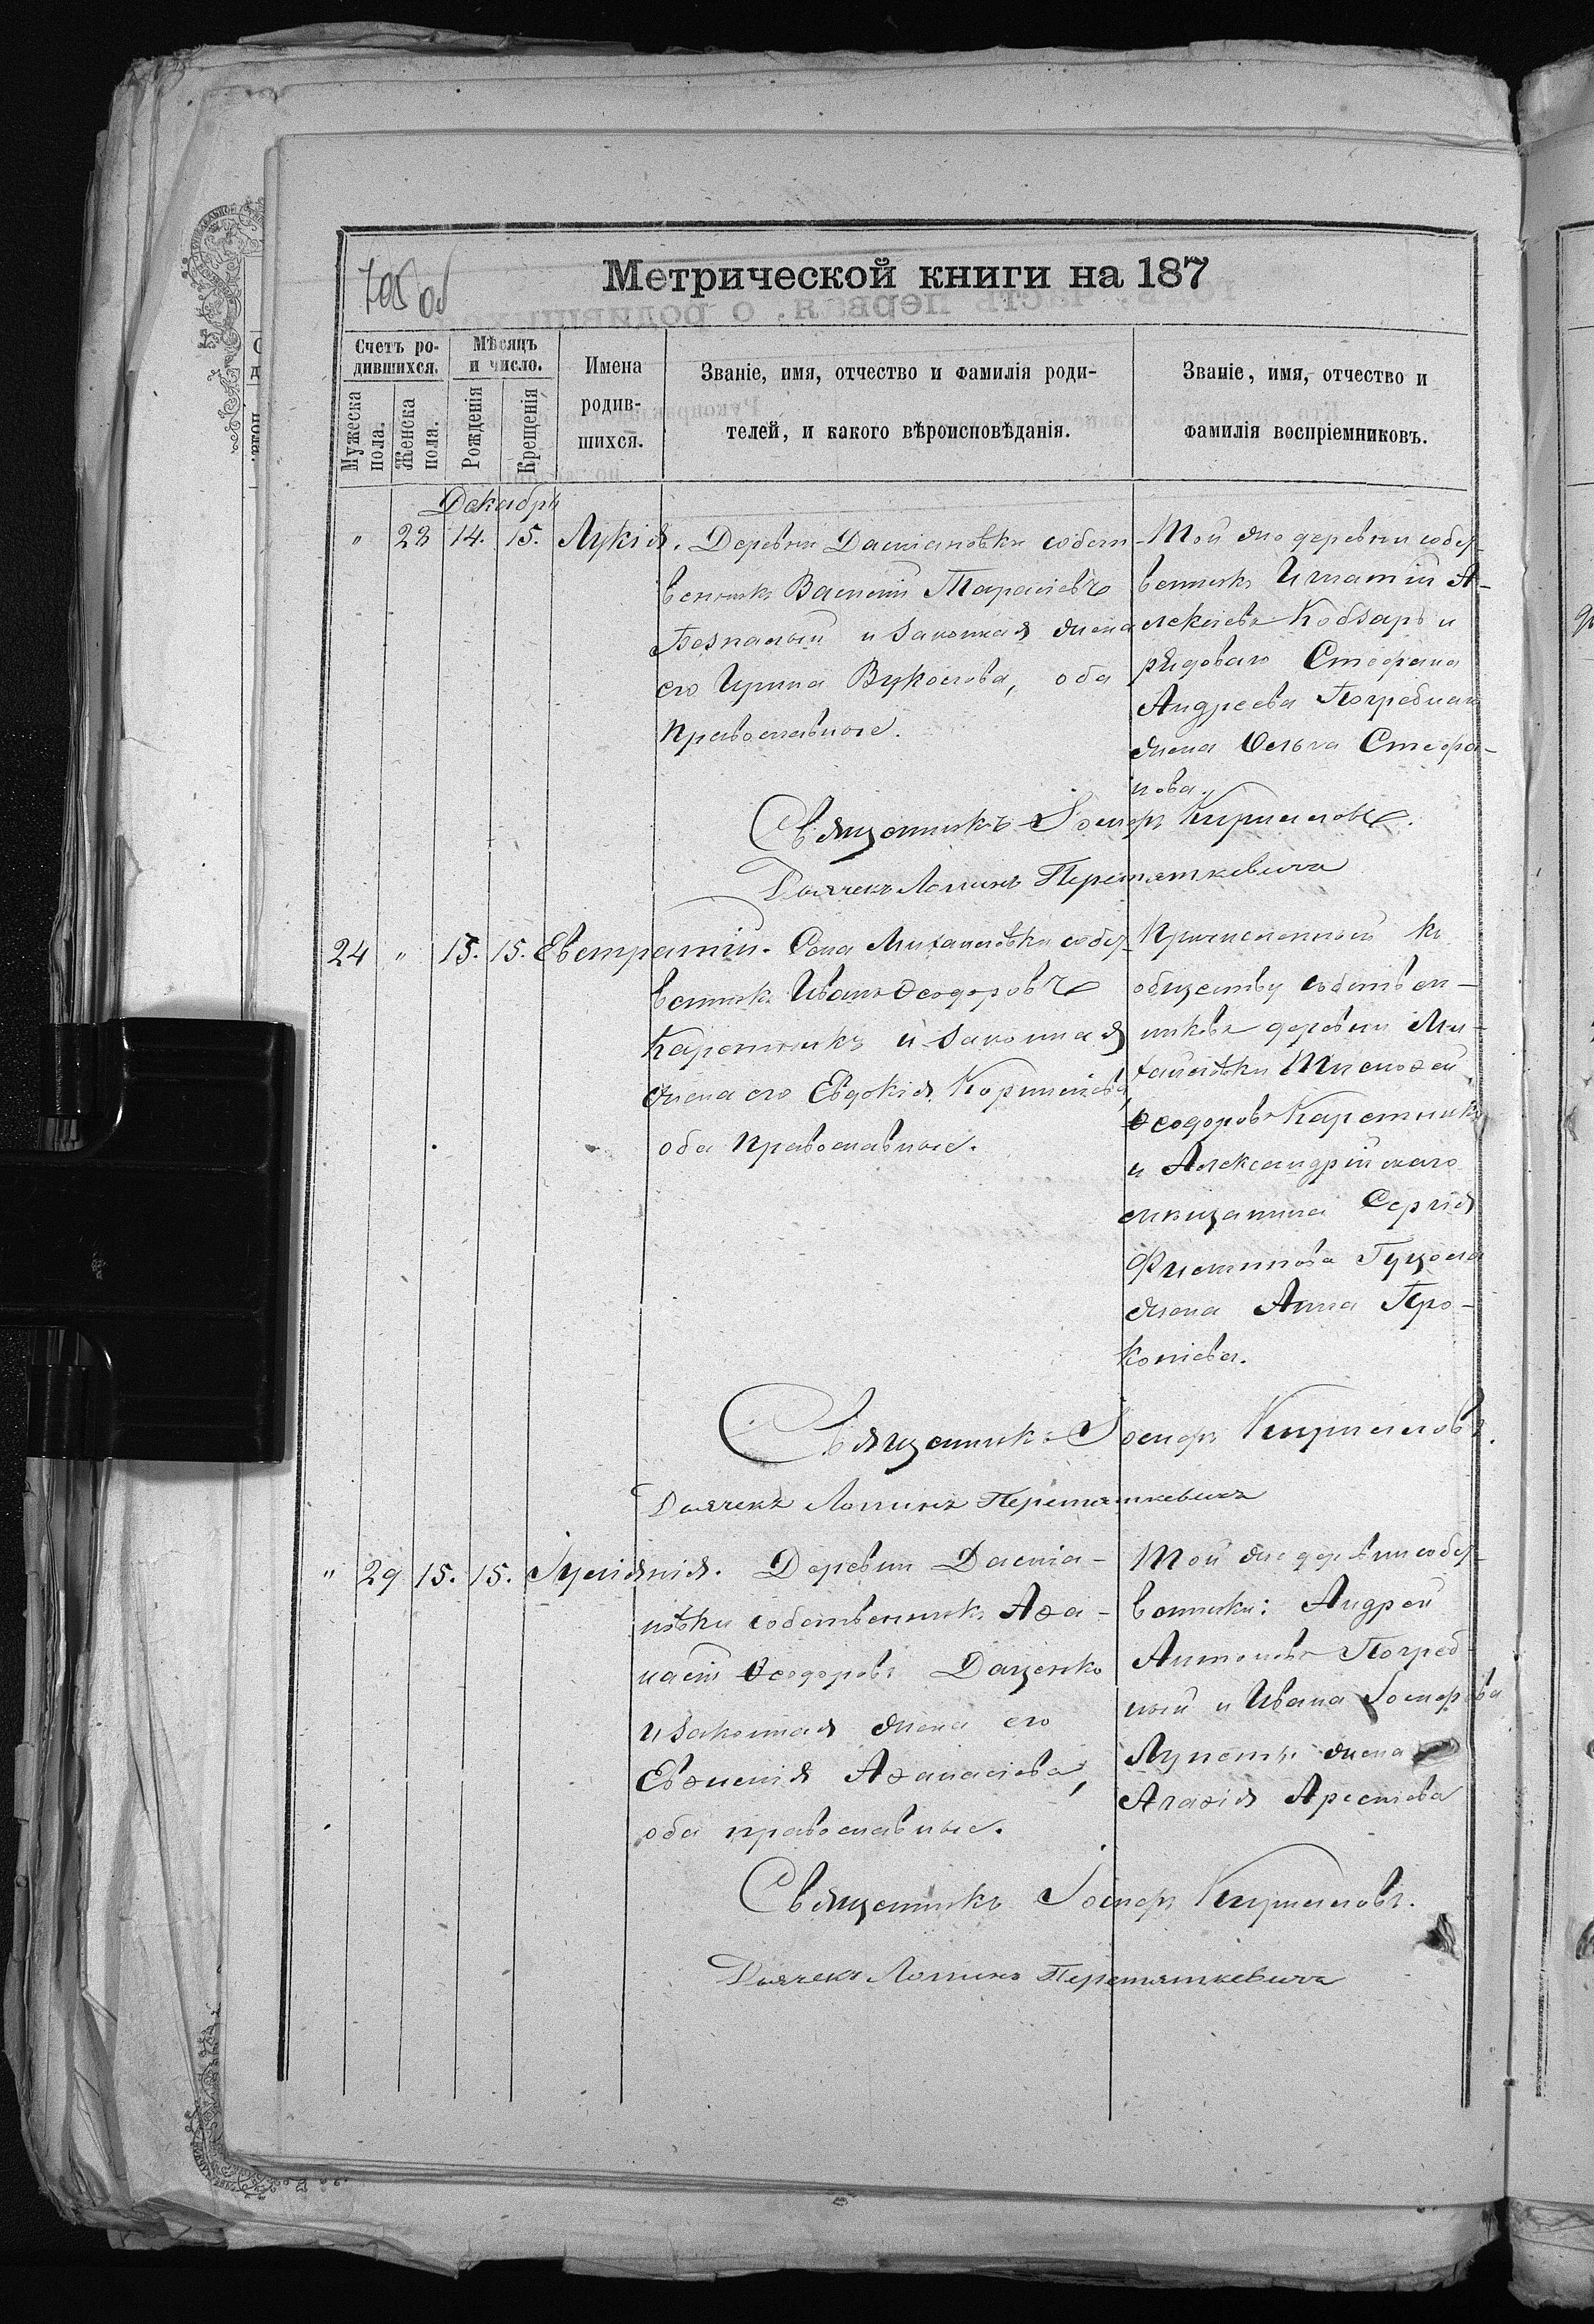 705 об
Метрической книги на 187
Счетъ ро-
дившихся.
Мужеска
пола.
Женска
пола.
Мѣсяцъ
и число.
Рожденія
Крещенія
Имена
родив-
шихся.
Званіе, имя, отчество и фамилія роди-
телей, и какого вѣроисповѣданія.
Званіе, имя, отчество и
фамилія воспріемниковъ.
Декабрь
" 28 14. 15. Лукія. Деревни собст
венникъ Василій Тарасіевъ
Безпалый и законная жена
его Ирина Вуколова, оба
православные.
Той же деревни собст
венникъ Игнатій А-
лексіевъ Кобзарь и
рядоваго Стефана
Андреева Погребнаго
жена Ольга Стефа-
нова.
Священникъ Іосифъ Кирилловъ.
Дьячекъ Логинъ Перетяткевичъ
24 " 15. 15. Евстратій. Села Михайловки собст
венникъ Иванъ Ѳеодоровъ
Каретникъ и законная
жена его Евдокія Корниліева,
оба православные.
Причисленный къ
обществу собствен-
никовъ деревни Ми-
хайловки Тимоѳей
Ѳеодоровъ Каретникъ
и Александрійскаго
мѣщанина Сергія
Филиппова
жена Анна Про-
копіева.
Священникъ Іосифъ Кирилловъ.
Дьячекъ Логинъ Перетяткевичъ
" 29 15. 15. Іуліянія. Деревни
собственникъ Аѳа-
насій Ѳеодоровъ Даценко
и законная жена его
Евѳимія Аѳанасіева,
оба православные.
Той же деревни собст
венники: Андрей
Антоніевъ Погреб-
ный и Ивана Іосифова
жена
Агаѳія Арсеніева
Священникъ Іосифъ Кирилловъ.
Дьячекъ Логинъ Перетяткевичъ